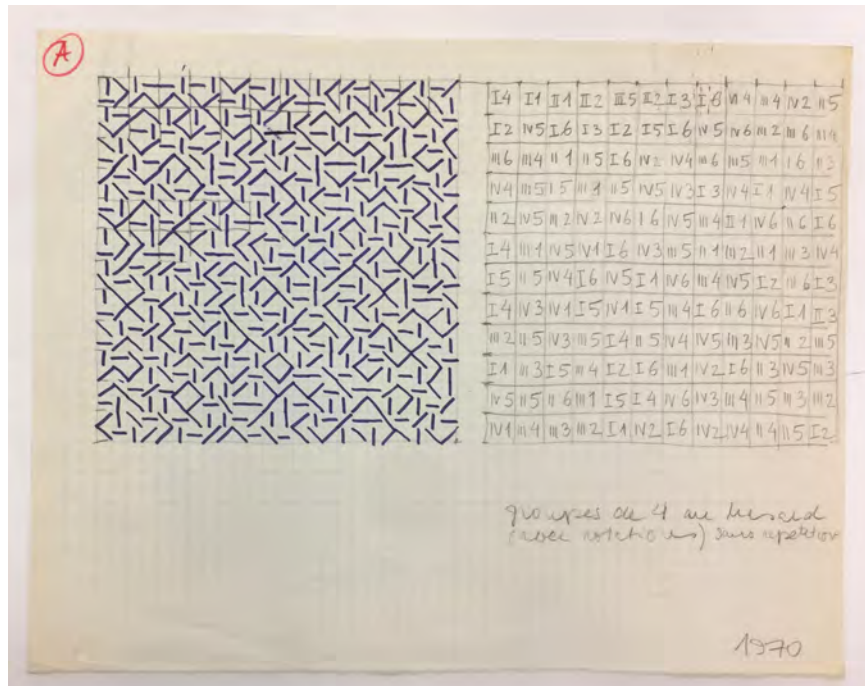 A
I4 I1 II1 II2 III5 II2 I3 I6 IV4 III4 IV2 II5
I2 IV5 I6 I3 I2 I5 I6 IV5 IV6 III2 III6 III4
III6 III4 II1 II5 I6 IV2 IV4 III6 III5 III1 I6 II3
IV4 III5 I5 III1 II5 IV5 IV3 I3 IV4 I1 IV4 I5
II2 IV5 III2 IV2 IV6 I6 IV5 III4 II1 IV6 II6 I6
I4 III1 IV5 IV1 I6 IV3 III5 II1 III2 II1 III3 IV4
I5 II5 IV4 I6 IV5 I1 IV6 III4 IV5 I2 III6 I3
I4 IV3 IV1 I5 IV1 I5 III4 I6 II6 IV6 I1 II3
III2 II5 IV3 III5 I4 II5 IV4 IV5 III3 IV5 II2 III5
I1 III3 I5 III4 I2 I6 III1 IV2 I6 II3 IV5 III3
IV5 II5 II6 III1 I5 I4 IV6 IV3 III4 II5 III3 III2
IV1 III4 III3 III2 I1 IV2 I6 IV2 IV4 II4 II5 I2
groupes de 4 au hasard
(avec rotations) sans répétition
1970